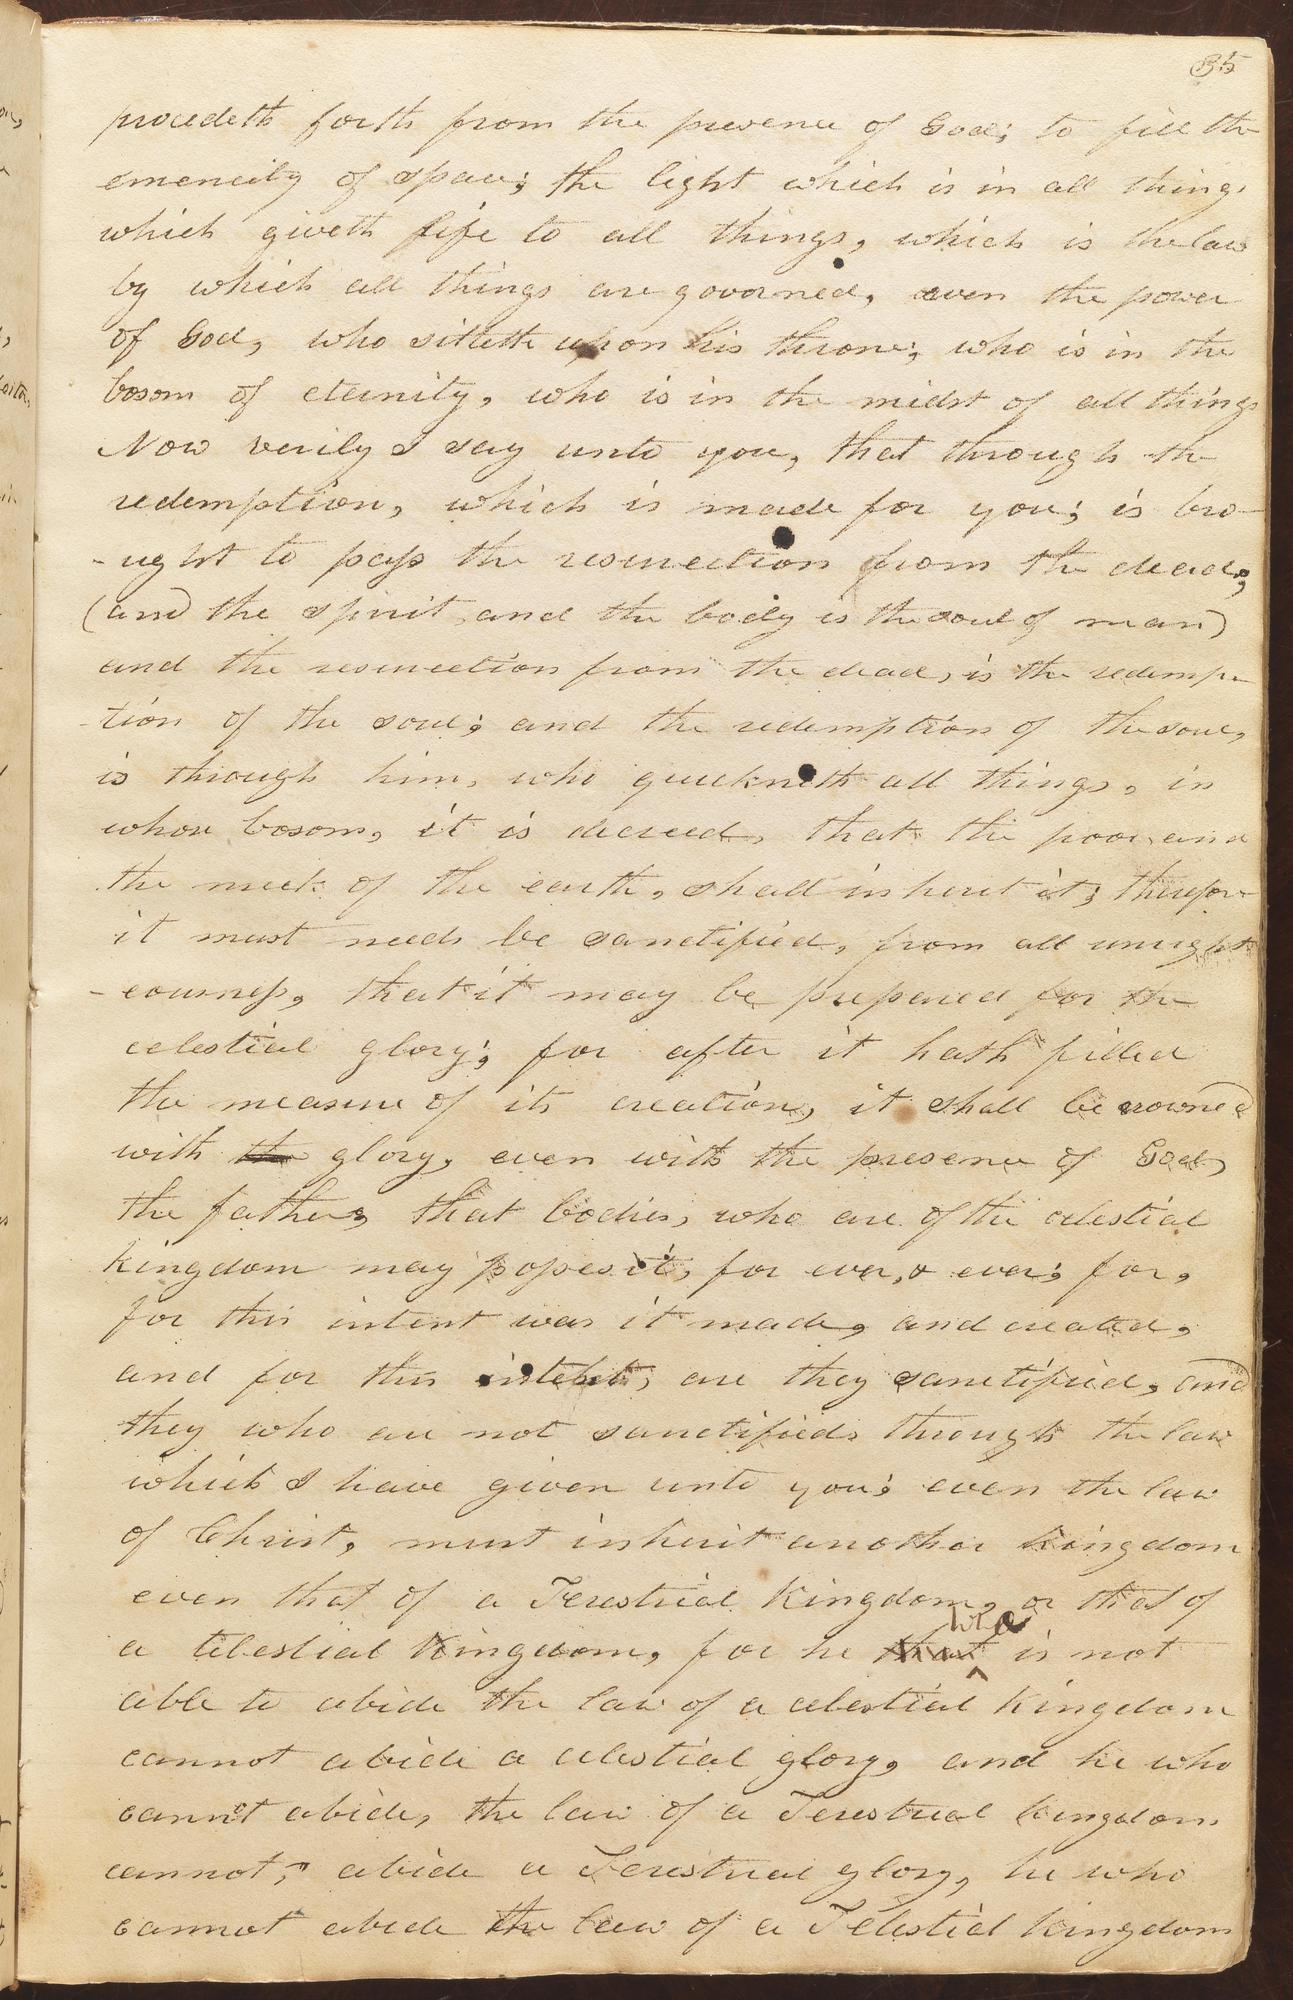 35
procedeth forth from the presence of God; to fill the
emencity of space; the light which is in all things
which giveth life to all things, which is the law
by which all things are governed, even the power
of God, who sitteth upon his throne; who is in the
bosom of eternity, who is in the midst of all things
Now verily I say unto you, that through the
redemption, which is made for you; is bro-
-ught to pass the resurrection from the dead;
(and the spirit and the body is the soul of man)
and the resurrection from the dead, is the redemp-
-tion of the soul; and the redemption of the soul,
is through him, who quickneth all things, in
whose bosom, it is decreed, that the poor and
the meek of the earth, shall inherit it; therefore
it must needs be sanctified, from all unright
-eousness, that it may be prepared for the
celestial glory; for after it hath filled
the measure of its creation, it shall be crowned
with the glory, even with the presence of God,
the father, that bodies, who are of the celestial
kingdom may posses it, for ever, & ever; for,
for this intent was it made, and created,
and for this intent, are they sanctified, and
they who are not sanctified, through the law
which I have given unto you; even the law
of Christ, must inherit another kingdom
even that of a Terestrial Kingdom, or that of
a telestial Kingdom, for he that who is not
able to abide the law of a celestial Kingdom
cannot abide a celestial glory, and he who
cannot abide, the law of a Terestrial kingdom
cannot, abide a Terestrial glory, he who
cannot abide the law of a Telestial kingdom